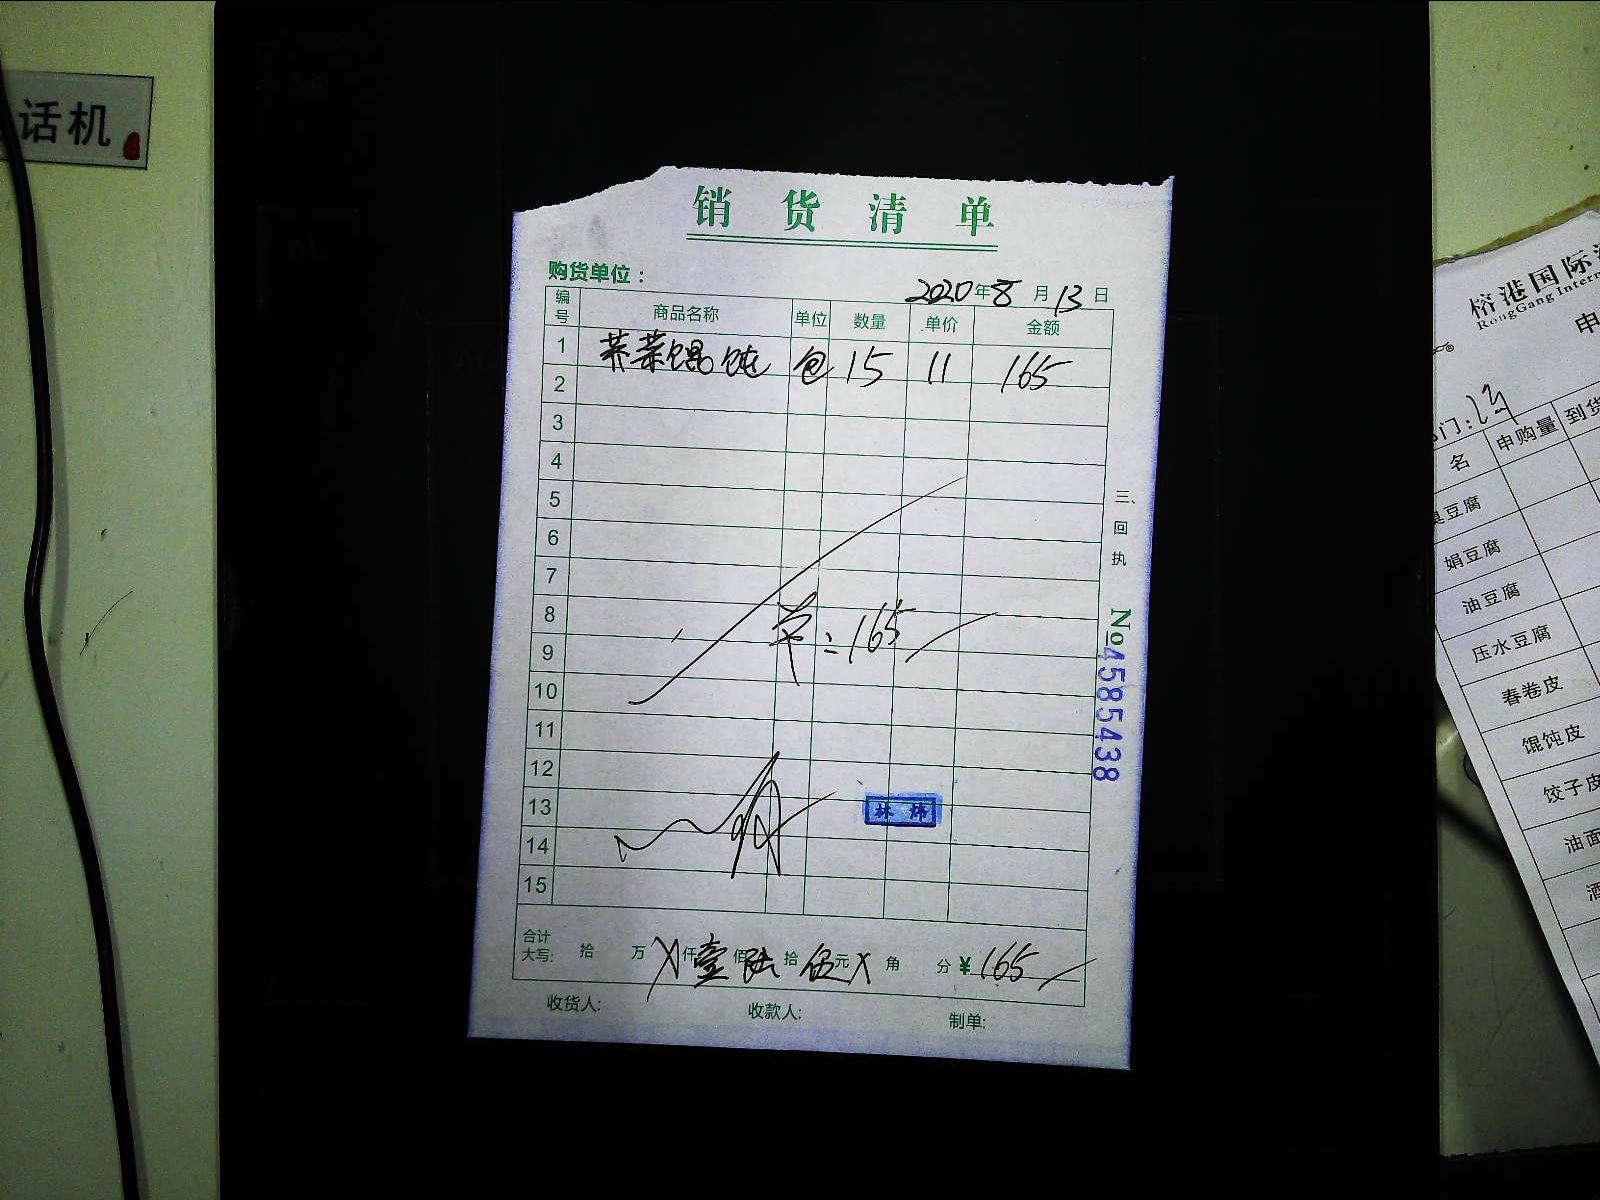 话机
销货清单
购货单位：
2020年8月13日
编号 商品名称 单位 数量 单价 金额
1 荠菜馄饨 包 15 11 165
2
3
4
5
6
7
8
9
10
11
12
13
14
15
=165
三、回执
No4585438
合计大写： 拾 万 X 仟 壹 佰 陆 拾 伍 元 X 角 分 ¥165
收货人： 收款人： 制单：
榕港国际
RongGang Intern
申
门：
名 申购量 到货
臭豆腐
娟豆腐
油豆腐
压水豆腐
春卷皮
馄饨皮
饺子皮
油面
酒